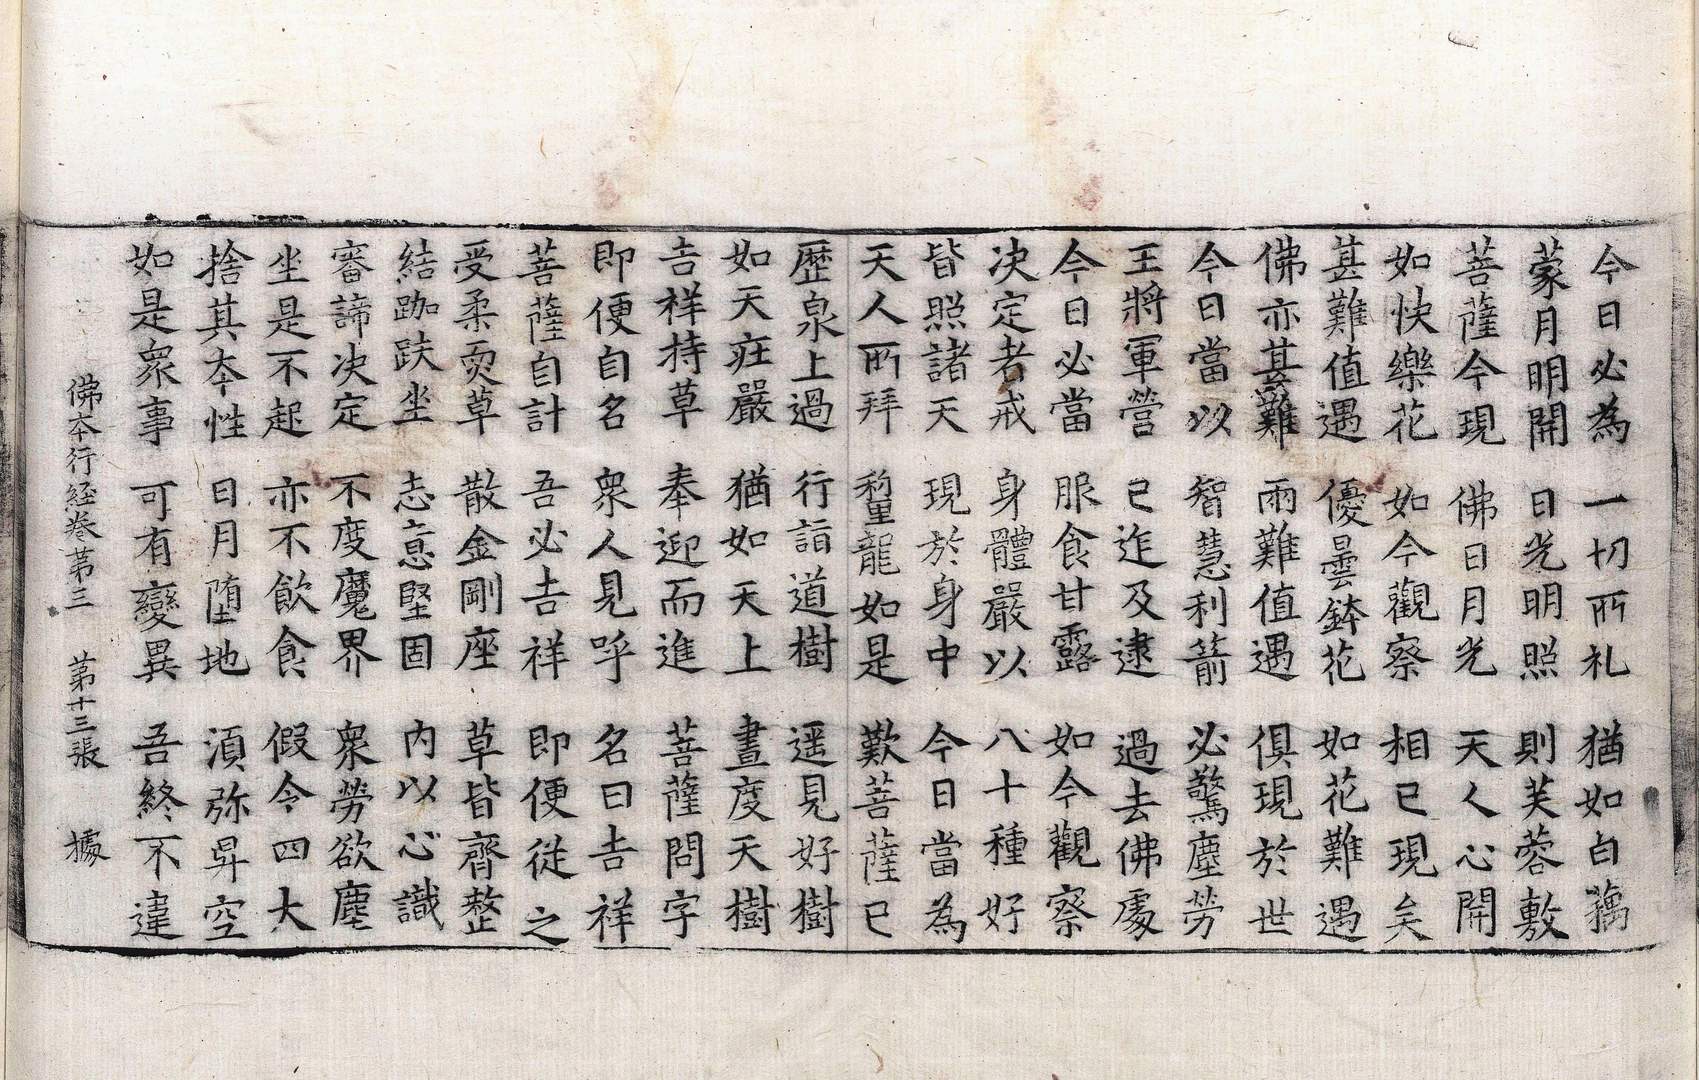 今日必為 一切所礼 猶如白鵝
蒙月明開 日光明照 則芙蓉敷
菩薩今現 佛日月光 天人心開
如快樂花 如今觀察 相已現矣
甚難值遇 優曇鉢花 如花難遇
佛亦甚難 兩難值遇 俱現於世
今日當以 智慧利箭 必驚塵勞
王將軍營 已迮及逮 過去佛處
今日必當 服食甘露 如今觀察
决定者戒 身體嚴以 八十種好
皆照諸天 現於身中 今日當為
天人所拜 種龍如是 歎菩薩已
歷泉上過 行詣道樹 遥見好樹
如天㽵嚴 猶如天上 晝度天樹
吉祥持草 奉迎而進 菩薩問字
即便自名 衆人見呼 名曰吉祥
菩薩自計 吾必吉祥 即便從之
受柔耎草 散金剛座 草皆齊整
結跏趺坐 志意堅固 内以心識
審諦决定 不度魔界 衆勞欲塵
坐是不起 亦不飲食 假令四大
捨其夲性 日月堕地 湏弥昇空
如是衆事 可有變異 吾終不違
佛夲行経卷苐三 苐十三張 㯫